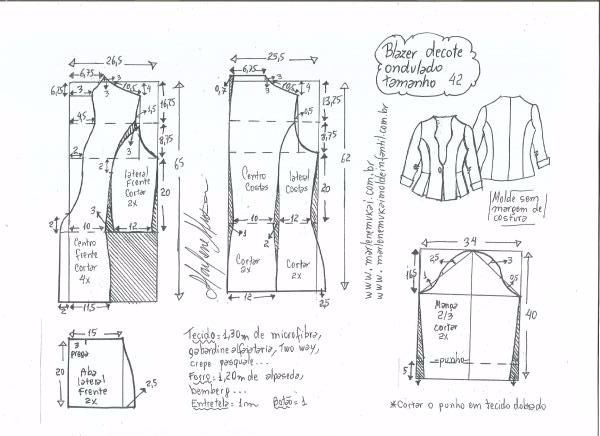 26,5
6,75
3
10,5
4
6,75
3
4,5
16,75
45
8,75
3
2
2
lateral
Frente
Cortar
2x
20
65
2
3
10
12
Centro
frente
Cortar
4x
11,5
25,5
6,75
0,7
3
10,5
4
0,5
13,75
8,75
62
Centro
Costas
lateral
Costas
20
10
12
1
2
Cortar
2x
Cortar
2x
12
2,5
Blazer decote
ondulado
tamanho 42
www.marlenemukai.com.br
www.marlenemukaimoldeinfantil.com.br
Molde sem
margem de
costura
34
2,5
3
16,5
1
0,5
Manga
2/3
cortar
2x
40
punho
5
*Cortar o punho em tecido dobrado
15
3
prega
20
Aba
lateral
Frente
2x
2,5
Marlene Mukai
Tecido = 1,30m de microfibra,
gabardine alfaiataria, Two way,
crepe pasquale...
Forro = 1,20m de alpaseda,
bemberg...
Entretela = 1m Botão = 1